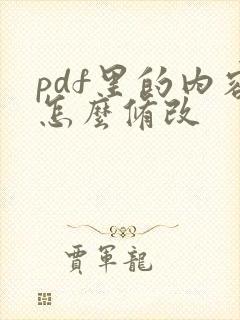 pdf里的内容
怎麼修改
賈軍龍